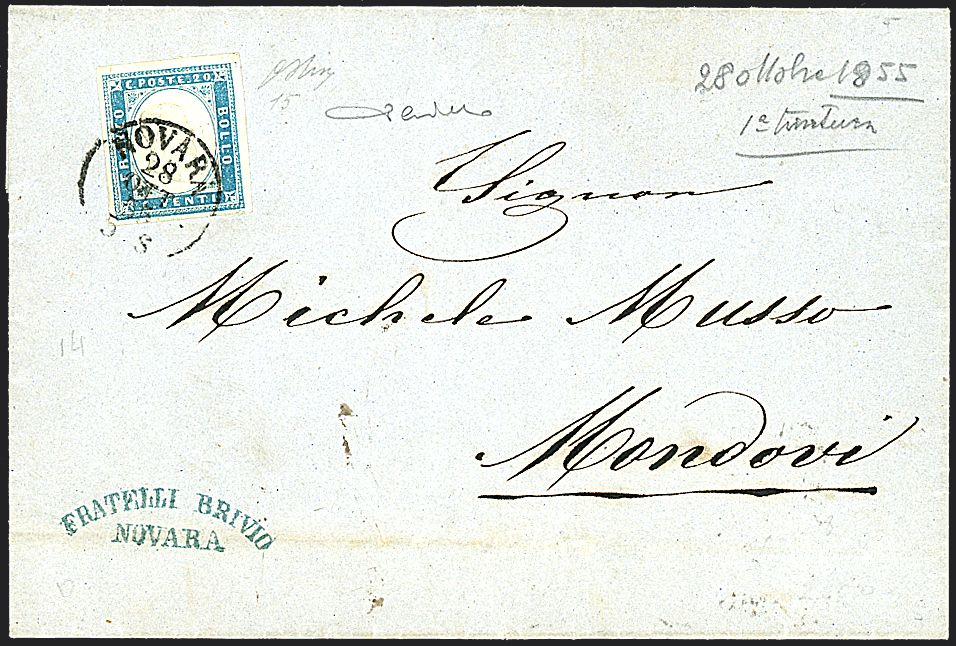 C. POSTE. 20
FRANCO
BOLLO
CENTI
NOVARA
28
OTT
55
15
28 ottobre 1855
1ª tiratura
Signor
Michele Musso
Mondovi
14
FRATELLI BRIVIO
NOVARA